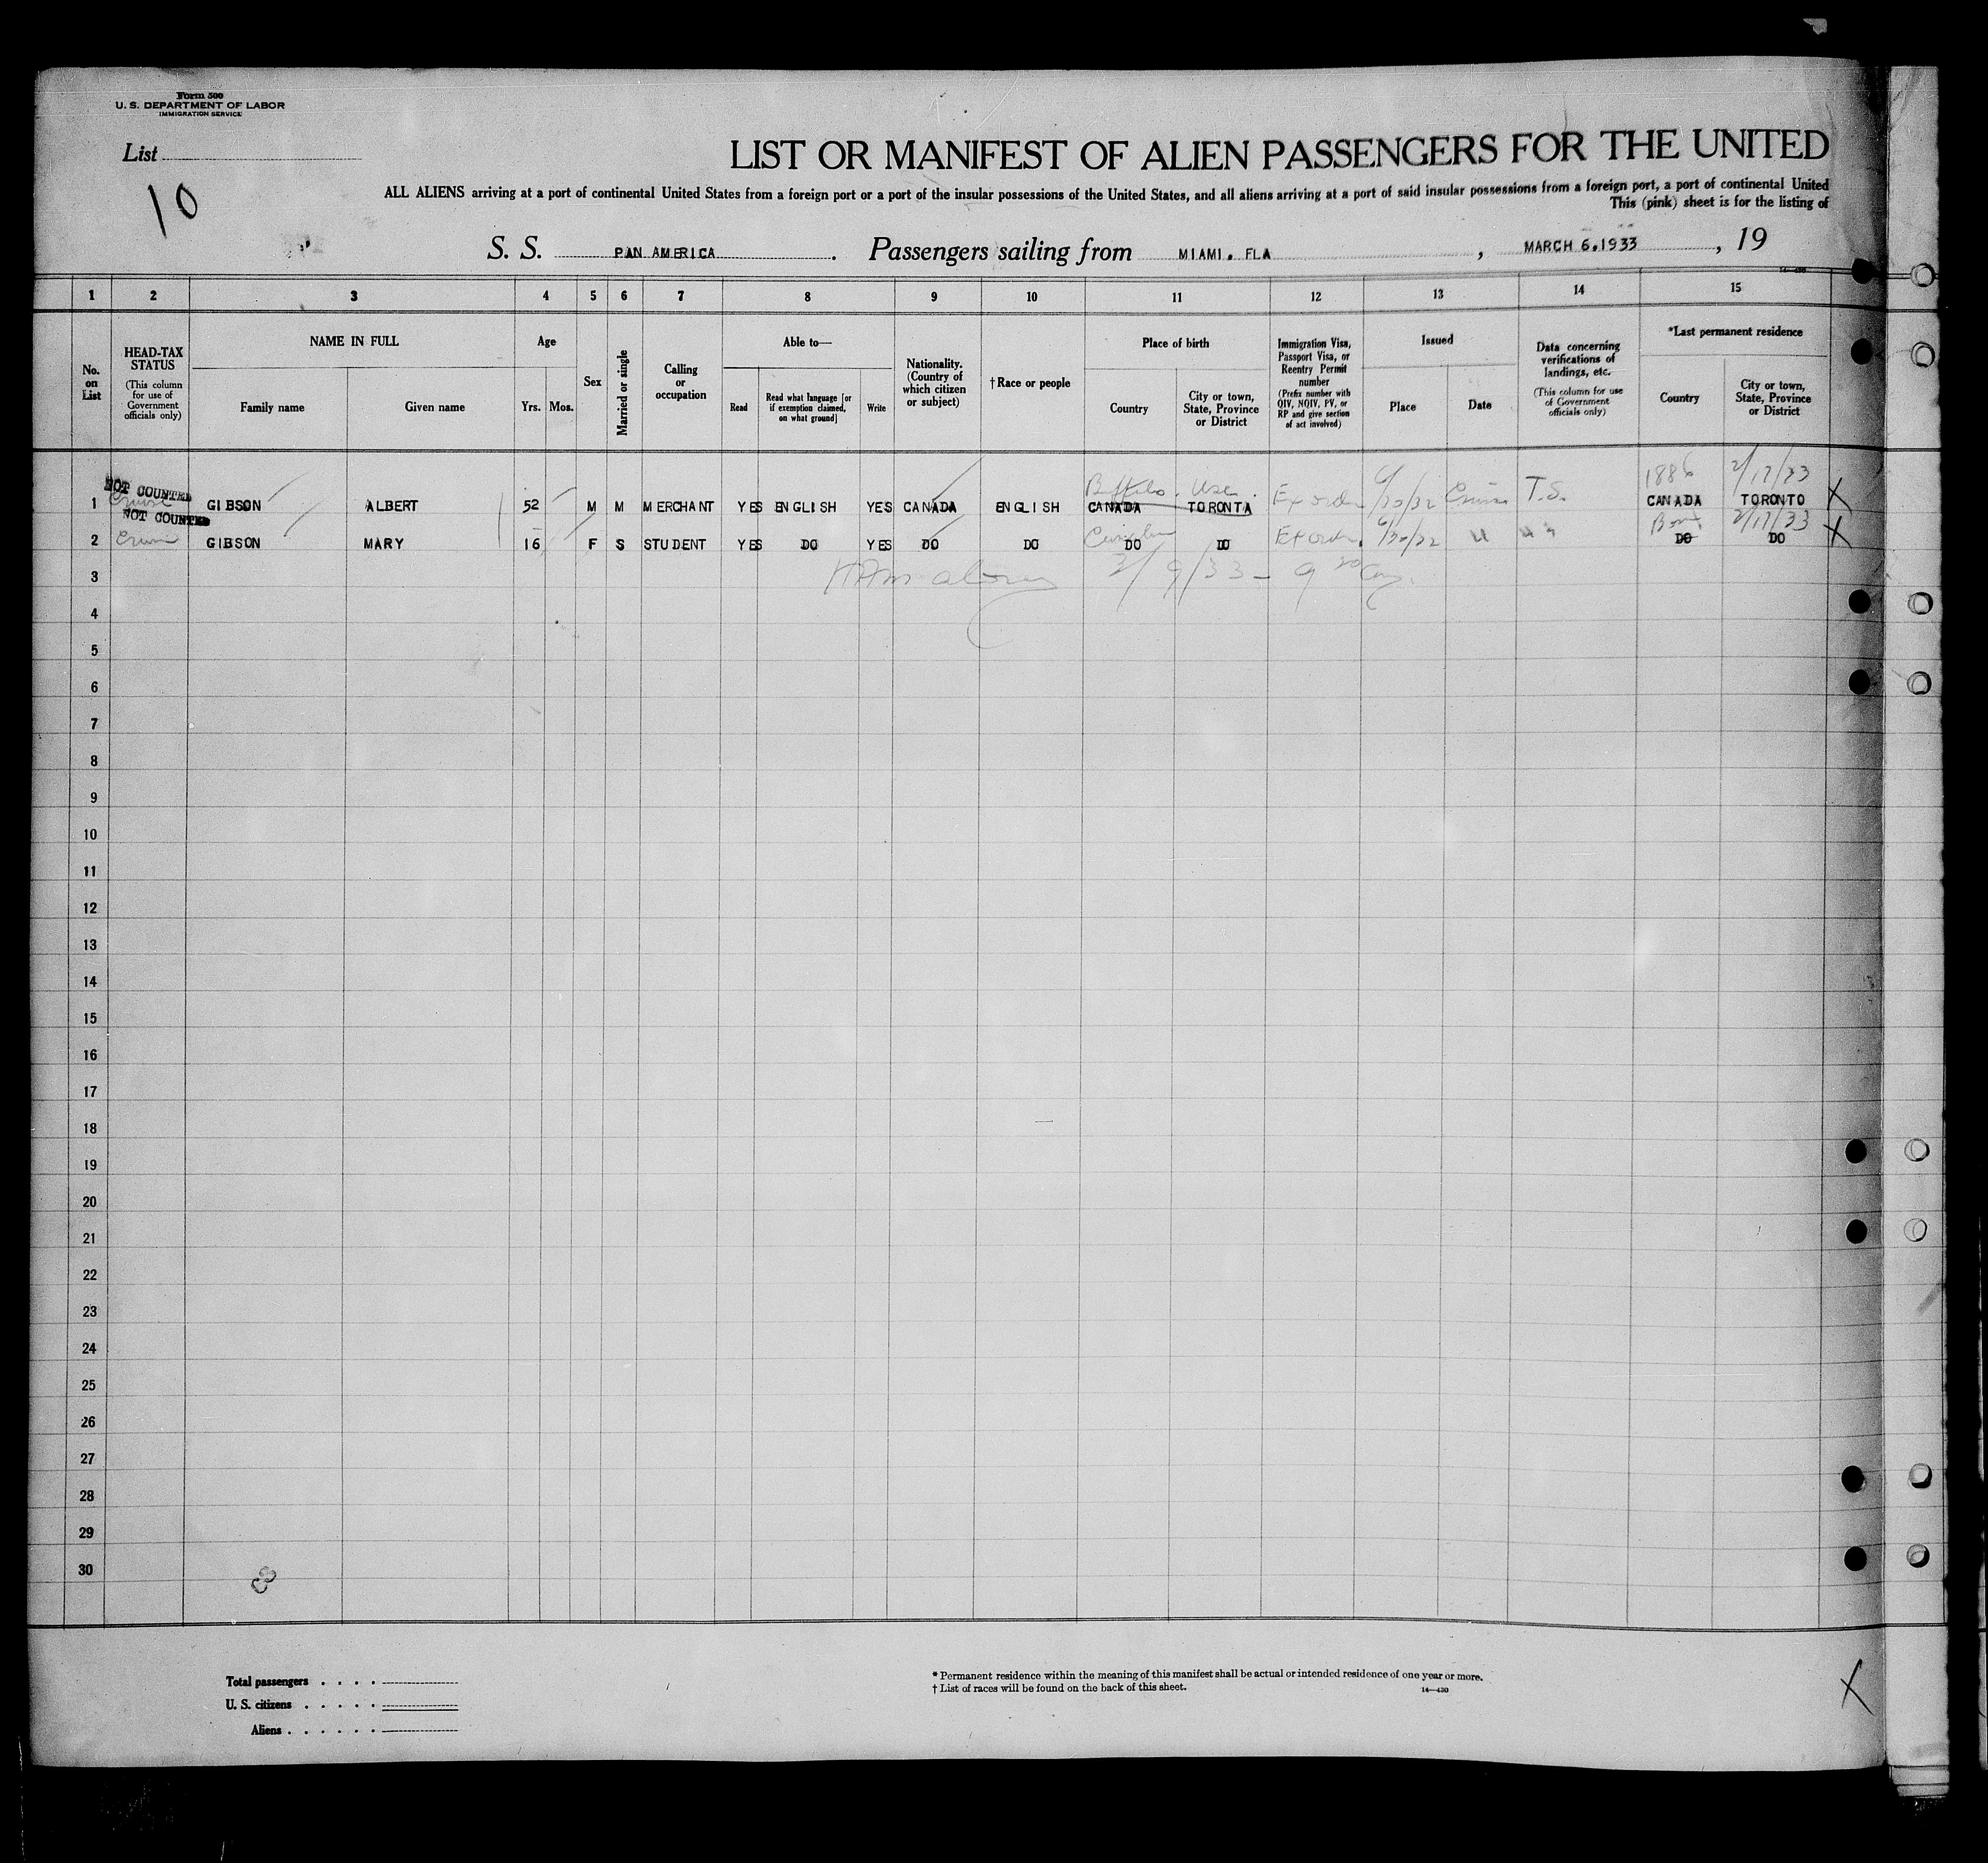 Form 500
U. S. DEPARTMENT OF LABOR
IMMIGRATION SERVICE
List
10
LIST OR MANIFEST OF ALIEN PASSENGERS FOR THE UNITED
ALL ALIENS arriving at a port of continental United States from a foreign port or a port of the insular possessions of the United States, and all aliens arriving at a port of said insular possessions from a foreign port, a port of continental United
This (pink) sheet is for the listing of
S. S. PAN AMERICA. Passengers sailing from MIAMI. FLA , MARCH 6.1933 , 19
14—430
1 2 3 4 5 6 7 8 9 10 11 12 13 14 15
No. on List
HEAD-TAX STATUS
(This column for use of Government officials only)
NAME IN FULL
Family name
Given name
Age
Yrs. Mos.
Sex
Married or single
Calling or occupation
Able to—
Read
Read what language [or if exemption claimed, on what ground]
Write
Nationality. (Country of which citizen or subject)
† Race or people
Place of birth
Country
City or town, State, Province or District
Immigration Visa, Passport Visa, or Reentry Permit number
(Prefix number with QIV, NQIV, PV, or RP and give section of act involved)
Issued
Place
Date
Data concerning verifications of landings, etc.
(This column for use of Government officials only)
*Last permanent residence
Country
City or town, State, Province or District
NOT COUNTED Buffalo 6/30/32 T.S. 1886 2/17/33
1 GIBSON ALBERT 52 M M MERCHANT YES ENGLISH YES CANADA ENGLISH CANADA TORONTA CANADA TORONTO X
NOT COUNTED 6/30/32 2/17/33
2 GIBSON MARY 16 F S STUDENT YES DO YES DO DO DO DO DO DO X
3
4
5
6
7
8
9
10
11
12
13
14
15
16
17
18
19
20
21
22
23
24
25
26
27
28
29
30
Total passengers . . . .
U. S. citizens . . . . .
Aliens . . . . . .
* Permanent residence within the meaning of this manifest shall be actual or intended residence of one year or more.
† List of races will be found on the back of this sheet.
14—430
X